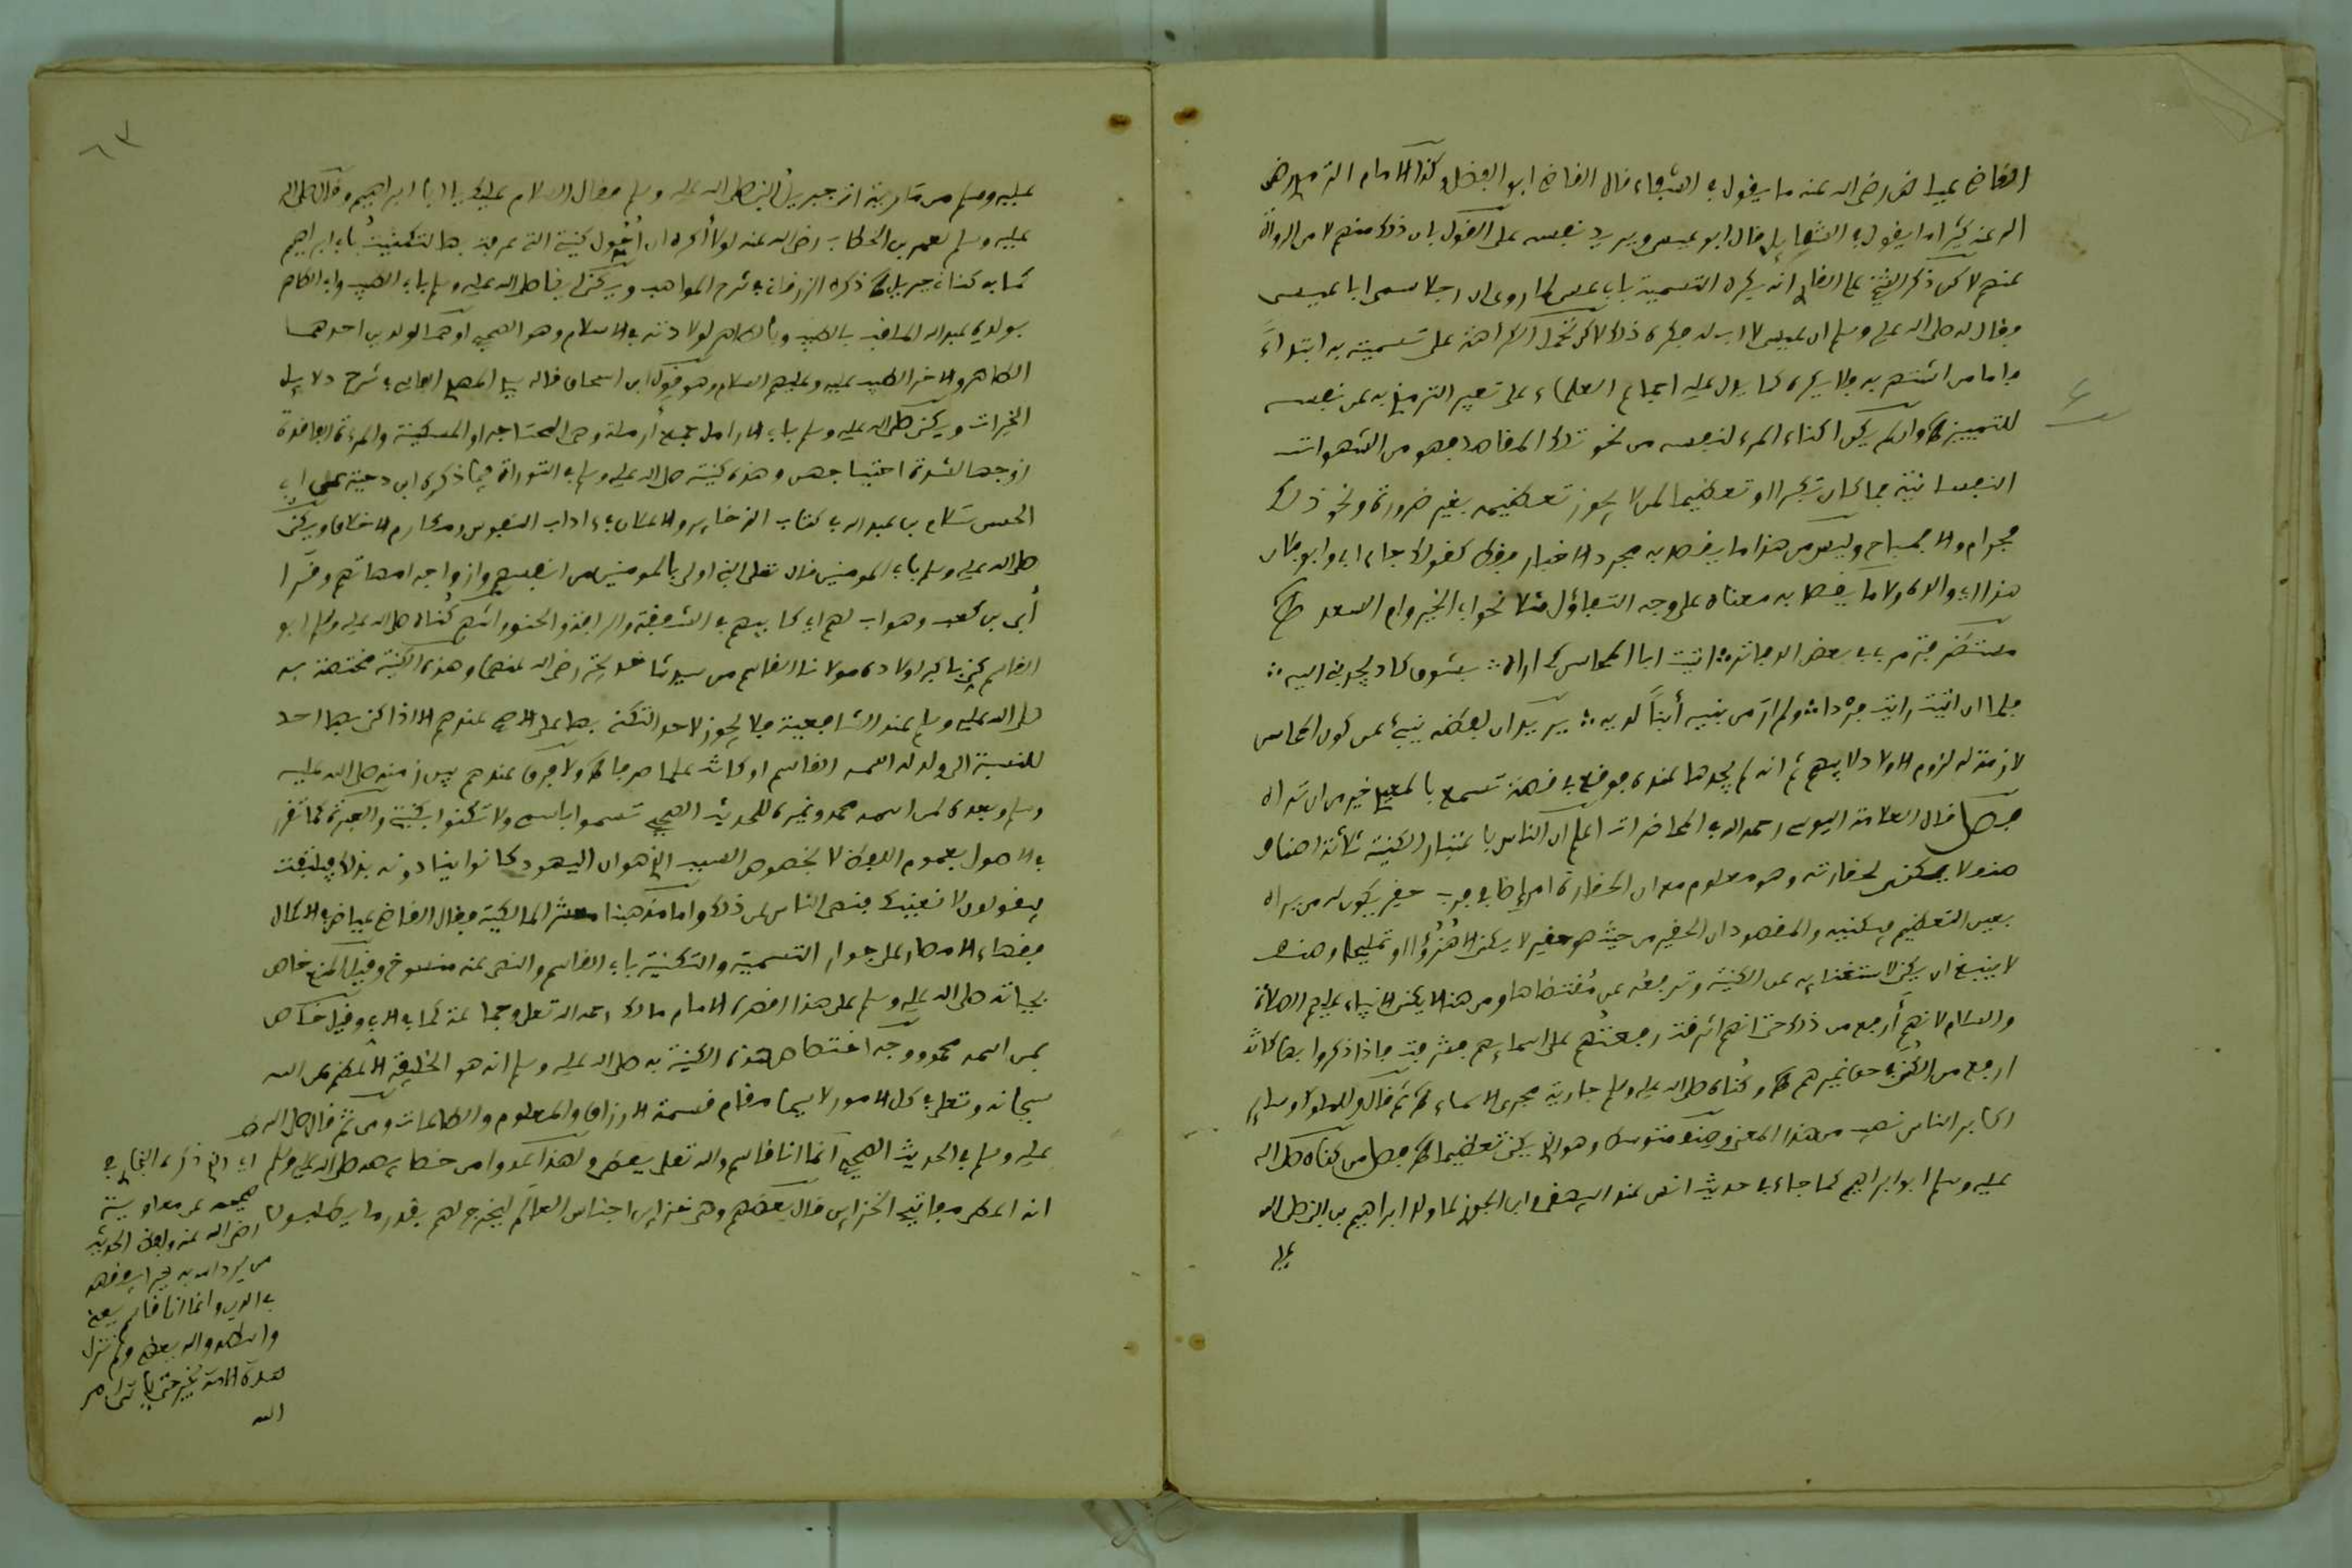 القاضي عياض رضي الله عنه ما يقول في الشفاء قال القاضي ابو الفضل وكذا الامام الترمذي رضي
الله عنه كثيرا ما يقول في الشمايل قال ابو عيسى ويريد نفسه على القول بان ذلك منهم لا من الرواة
عنهم لاكن ذكر الشيخ على القاري انه يكره التسمية بابي عيسى لما روي ان رجلا سمى ابا عيسى
فقال له صلى الله عليه وسلم ان عيسى لا اب له فكره ذلك لاكن تحمل الكراهة على تسميته به ابتداء
فاما من اشتهر به فلا يكره كما يدل عليه اجماع العلماء على تعبير الترمذي به عن نفسه
للتمييز وان لم يكن اكتناء المرء لنفسه من نحو تلك المقاصد فهو من الشهوات
النفسانية فما كان تكبرا او تعظيما لمن لا يجوز تعظيمه بغير ضرورة ونحو ذلك
فحرام والا فمباح وليس من هذا ما يقصد به مجرد الاخبار فقط كقولك جاء ابي وابو فلان
هذا اي والده ولا ما يقصد به معناه على وجه التفاؤل مثلا نحو ابي الخير وام السعد
بعض الوجائز اتيت ابا المحاسن كي اراه بشوق كاد يجذبني اليه
فلما ان اتيت رايت فردا ولم ار من بنيه ابنا لديه يريد ان لفظه ينبئ عن كون المحاسن
لازمة له لزوم الاولاد لابيهم ثم انه لم يجدها عنده فوقع في قصة تسمع بالمعيدي خير من ان تراه
فصل قال العلامة اليوسي رحمه الله في المحاضرات اعلم ان الناس باعتبار الكنية ثلاثة اصناف
صنف لا يكنى لحقارته وهو معلوم من ان الحقارة امر اضافي فرب حقير يكون له من يراه
بعين التعظيم فيكنيه والمقصود ان الحقير من حيث هو حقير لا يكنى الا هزؤا او تمليحا وصنف
لا ينبغي ان يكنى لاستغنايه عن الكنية وترفعه عن مقتضاها ومن هذا لا يكنى الانبياء عليهم الصلاة
والسلام لانهم ارفع من ذلك حتى انهم اشرفت رفعتهم على اسمايهم فشرفت فاذا ذكروا بها كانت
ارفع من الكنى في حق غيرهم وكناه صلى الله عليه وسلم جارية مجرى الاسماء ثم قال وللملوك وساير
اكابر الناس نصيب من هذا المعنى وصنف متوسط وهو الذي يكنى تعظيما فصل من كناه صلى الله
عليه وسلم ابو ابراهيم كما جاء في حديث انس عند البيهقي وابن الجوزي لما ولد ابراهيم بن النبي صلى الله
عليه
عليه وسلم من مارية اتى جبريل النبي صلى الله عليه وسلم فقال السلام عليك يا ابا ابراهيم وقال صلى الله
عليه وسلم لعمر بن الخطاب رضي الله عنه لولا اكره ان احول كنيتي التي عرفت بها لتكنيت بابي ابراهيم
كما به كناني جبريل ذكره الزرقاني في شرح المواهب ويكنى ايضا صلى الله عليه وسلم بابي الطيب وابي الطاهر
بولده عبد الله الملقب بالطيب وبالطاهر لولادته في الاسلام وهو الصحيح او هما لولدين احدهما
الطاهر والاخر الطيب عليه وعليهم السلام وهو قول ابن اسحاق قاله المهدي الفاسي في شرح دلايل
الخيرات ويكنى صلى الله عليه وسلم بابي الارامل جمع أرملة وهي المحتاجة او المسكينة والمرءة الفاقدة
زوجها لشدة احتياجهن وهذه كنيته صلى الله عليه وسلم في التوراة فيما ذكره ابن دحية على ابي
الحسن سلام بن عبد الله في كتاب الذخاير والاعلاق في ءاداب النفوس ومكارم الاخلاق ويكنى
صلى الله عليه وسلم بابي المومنين قال تعلى النبي اولى بالمومنين من انفسهم وازواجه امهاتهم وقرا
أبي بن كعب وهو اب لهم اي كابيهم في الشفقة والرافة والحنو واشهر كناه صلى الله عليه وسلم ابو
القاسم كني باكبر اولاده مولانا القاسم من سيدتنا خديجة رضي الله عنهما وهذه الكنية مختصة به
صلى الله عليه وسلم عند الشافعية فلا يجوز لاحد التكنى بها على الاصح عندهم الا اذا كني بها احد
للنسبة الى ولد له اسمه القاسم او كانت علما صرفا ولا فرق عندهم بين زمنه صلى الله عليه
وسلم وبعده لمن اسمه محمد وغيره للحديث الصحيح تسموا باسمي ولا تكنوا بكنيتي والعبرة كما تقرر
في الاصول بعموم اللفظ لا بخصوص السبب الذي هو ان اليهود كانوا ينادونه بذلك فيلتفت
فيقولون لا نعنيك فنهى الناس عن ذلك واما مذهبنا معشر المالكية فقال القاضي عياض في الاكمال
فقهاء الامصار على جواز التسمية والتكنية بابي القاسم والنهي عنه منسوخ وقيل المنع خاص
بحياته صلى الله عليه وسلم على هذا اقتصر الامام مالك رحمه الله تعلى وجماعة كما في الابي وقيل خاص
بمن اسمه محمد ووجه اختصاص هذه الكنية به صلى الله عليه وسلم انه هو الخليفة الاعظم عن الله
سبحانه وتعلى في كل الامور لا سيما مقام قسمة الارزاق والمعلوم والطاعات ومن ثم قال صلى الله
عليه وسلم في الحديث الصحيح انما انا قاسم والله تعلى يعطي ولهذا عدوا من خصايصه صلى الله عليه وسلم
انه اعطي مفاتيح الخزاين قال بعضهم وهي خزاين اجناس العالم ليخرج لهم بقدر ما يطلبون
اي الذي ذكره البخاري في
صحيحه عن معاوية
رضي الله عنه ولفظ الحديث
من يرد الله به خيرا يفقهه
في الدين وانما انا قاسم يعني
والله يعطي ولن تزال
هذه الامة بخير حتى ياتي امر
الله